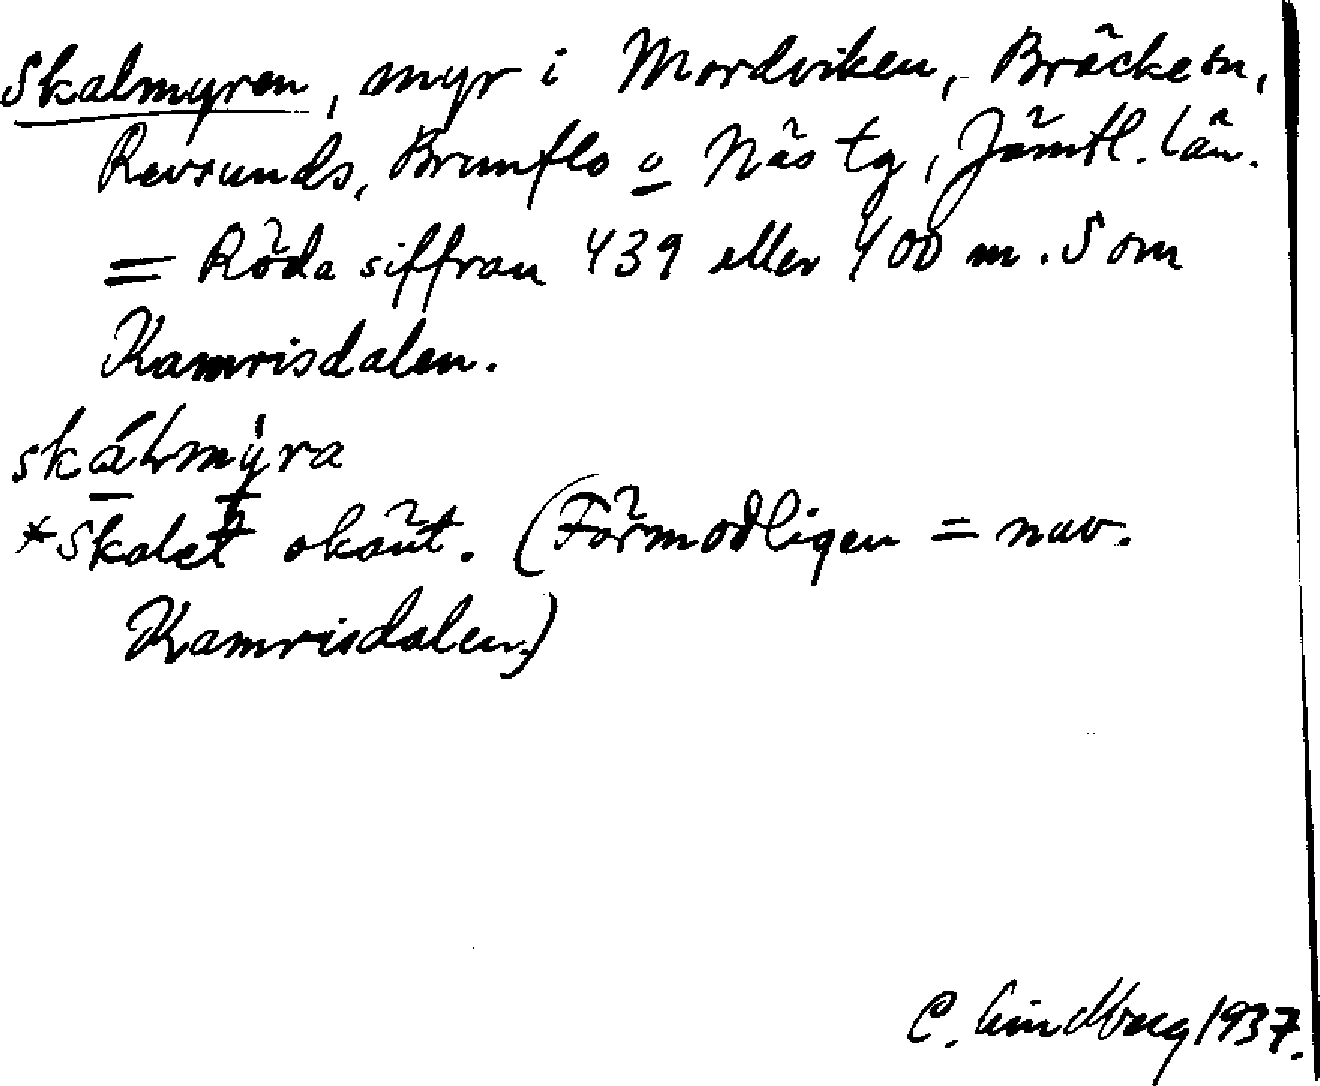 Skalmyren, myr i Mordviken, Bräcke sn,
Revsunds, Brunflo o Näs tg, Jämtl. län.
= Röda siffran 439 eller 400 m. Som
Kamrisdalen.
skálmýra
*Skalet okänt. (Förmodligen = nuv.
Kamrisdalen.)
C. Lindberg 1937.